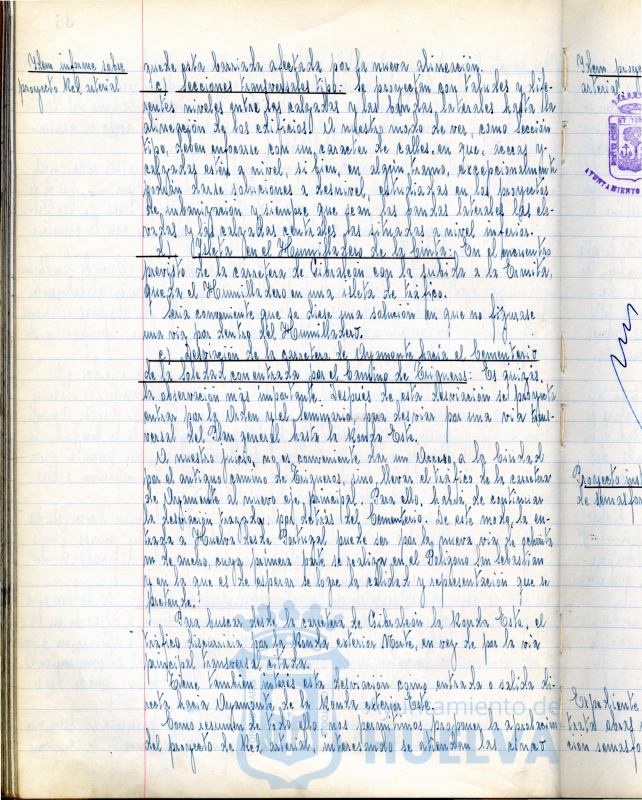 Item informe sobre
proyecto Red arterial
quede esta barriada afectada por la nueva alineación.
c) Secciones transversales tipo: Se proyectan con taludes y dife-
rentes niveles entre las calzadas y las bandas laterales hasta la
alineación de los edificios. A nuestro modo de ver, como sección
tipo, deben enfocarse con un caracter de calles, en que, aceras y
calzadas estén a nivel, si bien, en algún tramo, excepcionalmente
podrán darse soluciones a desnivel, estudiadas en los proyectos
de urbanización y siempre que sean las bandas laterales las ele-
vadas y las calzadas centrales las situadas a nivel inferior.
d) Isleta en el Humilladero de la Cinta: En el encuentro
previsto de la carretera de Gibraleón con la subida a la Ermita,
queda el Humilladero en una isleta de tráfico.
Sería conveniente que se diese una solución en que no figurase
una vía por dentro del Humilladero.
e) Desviación de la carretera de Ayamonte hacia el Cementerio
de la Soledad con entrada por el Camino de Trigueros: Es quizás,
la observación más importante. Después de esta desviación se proyecta
entrar por la Orden y el Seminario para desviar por una vía trans-
versal del Plan general hasta la Ronda Este.
A nuestro juicio, no es conveniente dar un acceso a la ciudad
por el antiguo camino de Trigueros, sino, llevar el tráfico de la carretera
de Ayamonte al nuevo eje principal. Para ello, habrá de continuar
la desviación trazada, por detrás del Cementerio. De este modo, la en-
trada a Huelva desde Portugal puede ser por la nueva vía de
m. de ancho, cuya primera parte se realiza en el Polígono San Sebastián
y en la que es de esperar se logre la calidad y representación que se
pretende.
Para buscar desde la carretera de Gibraleón la Ronda Este, el
tráfico discurriría por la Ronda exterior Norte, en vez de por la vía
principal transversal citada.
Tiene también interés esta desviación como entrada o salida di-
recta hacia Ayamonte, de la Ronda exterior Norte.
Como resumen de todo esto nos permitimos proponer la aprobación
del proyecto de Red arterial, interesando se atiendan las cinco
Item proyec
arterial
AYUNTAMIENTO
Proyecto ins
de semáfor
Expediente
tratar obras
ción semáfo
Ayuntamiento de
HUELVA